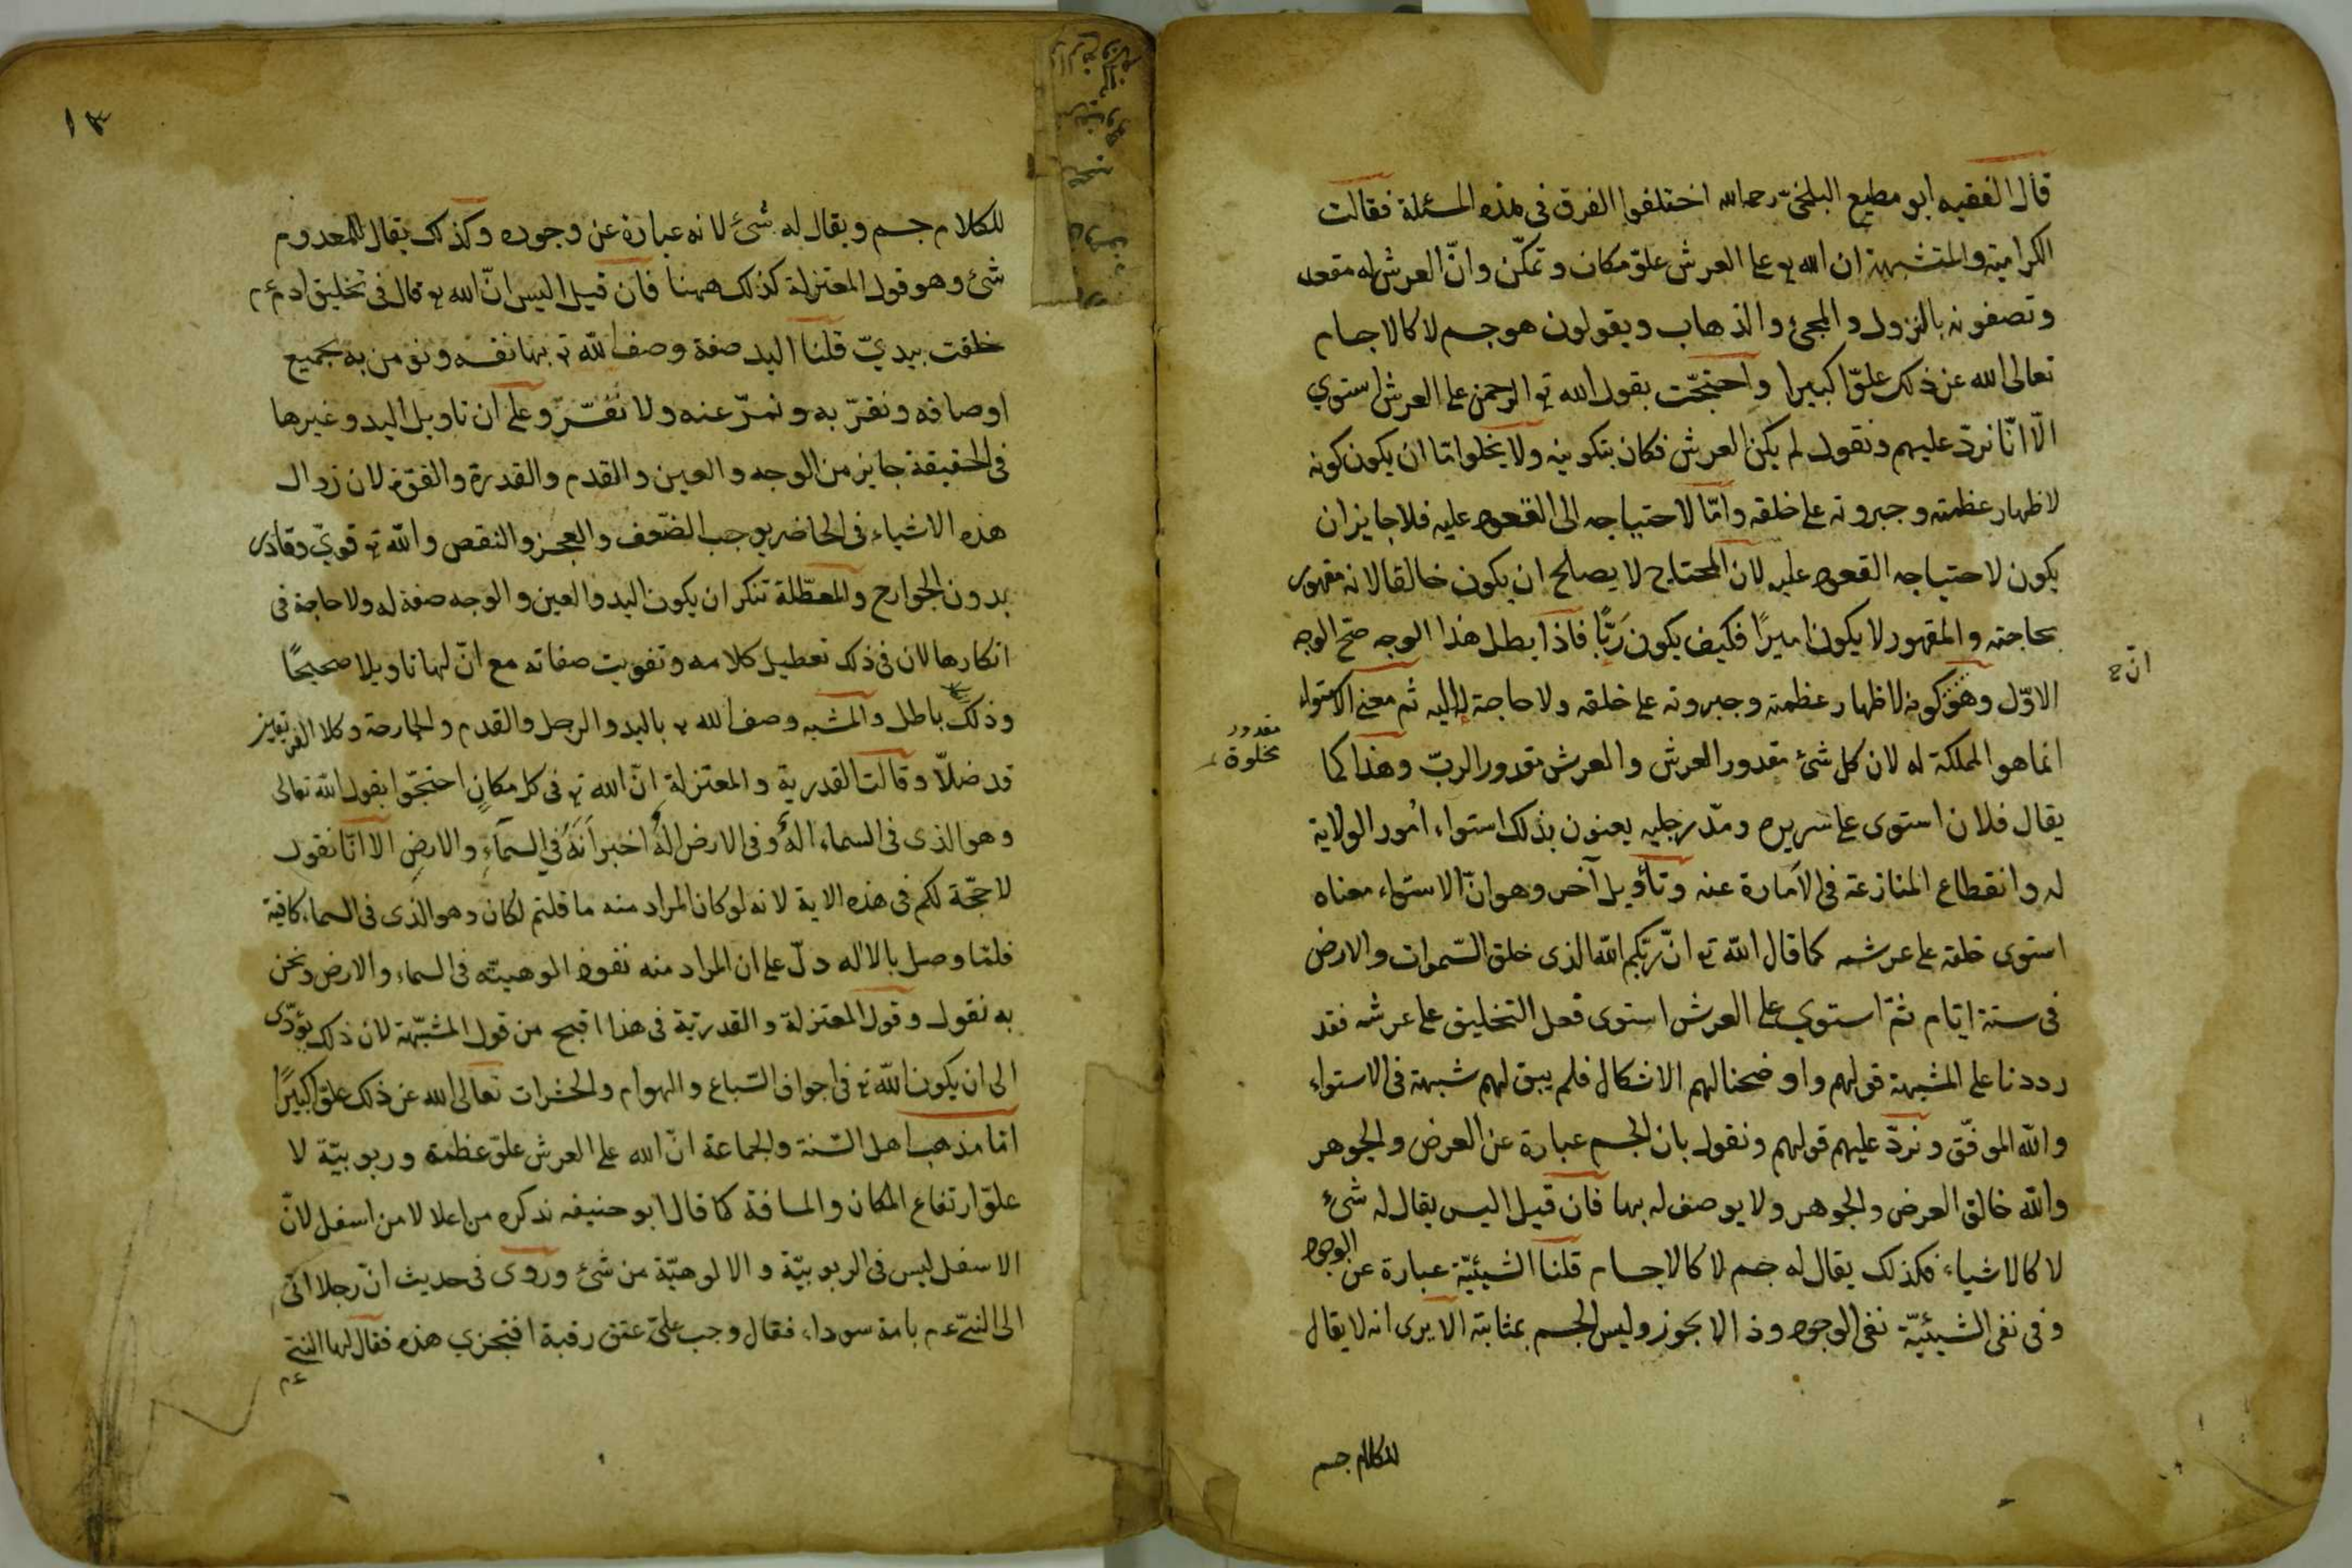 قال الفقيه ابو مطيع البلخيّ رحمه الله اختلفوا الفرق فى هذه المسئلة فقالت
الكرامية والمتشبهة ان الله تع على العرش علوّ مكان وتمكّن وانّ العرش له مقعد
وتصفونه بالنزول والمجئ والذهاب ويقولون هو جسم لا كالاجسام
تعالى الله عن ذلك علوّا كبيرا واحتجّت بقول الله تع الرحمن على العرش استوي
الّا انّا نردّ عليهم ونقول لم يكن العرش فكان بتكوينه ولا يخلو امّا ان يكون كونه
لاظهار عظمته وجبروته على خلقه وامّا لاحتياجه الى القعود عليه فلا جايز ان
يكون لاحتياجه القعود عليه لان المحتاج لا يصلح ان يكون خالقا لانه مقهور
بحاجته والمقهور لا يكون اميرًا فكيف يكون رَبًّا فاذا بطل هذا الوجه صحّ الوجه
انّ ح
الاوّل وهو كونه لاظهار عظمته وجبروته على خلقه ولا حاجة له اليه ثم معنى الاستواء
مقدور
مخلوة
انما هو المملكة له لان كل شئ مقدور العرش والعرش مقدور الربّ وهذا كما
يقال فلان استوى على سريره ومدّ رجليه يعنون بذلك استواء امُور الولاية
له وانقطاع المنازعة فى الاَمارة عنه وتأويل آخر وهو انّ الاستواء معناه
استوى خلقه على عرشه كما قال الله تع انّ ربّكم الله الذى خلق السّموات والارض
فى ستة ايّام ثمّ استوي على العرش استوى فعل التخليق على عرشه فقد
رددنا على المشبهة قولهم واوضحنا لهم الاشكال فلم يبق لهم شبهة فى الاستواء
والله الموفّق ونردّ عليهم قولهم ونقول بان الجسم عبارة عن العرض والجوهر
والله خالق العرض والجوهر ولا يوصف له بها فان قيل اليس يقال له شئ
لا كالاشياء فكذلك يقال له جسم لا كالاجسام قلنا الشيئيّة عبارة عن الوجود
وفى نفى الشيئيّة نفى الوجود وذا لا يجوز وليس الجسم بمثابته الا يرى انه لا يقال
للكلام جسم
١٣
للكلام جسم ويقال له شئ لانه عبارة عن وجوده وكذلك يقال للمعدوم
شئ وهو قول المعتزلة كذلك ههنا فان قيل اليس انّ الله تع قال فى تخليق ادم ءم
خلقت بيديّ قلنا اليد صفة وصف الله تع بها نفسه ونومن به بجميع
اوصافه ونقرّ به ونمرّ عنه ولا نفسّر وعلى ان تاويل اليد وغيرها
فى الحقيقة جايز من الوجه والعين والقدم والقدرة والقوّة لان زوال
هذه الاشياء فى الحاضر يوجب الضّعف والعجز والنقص والله تع قويّ وقادر
بدون الجوارح والمعطّلة تنكر ان يكون اليد والعين والوجه صفة له ولا حاجة فى
انكارها لان فى ذلك تعطيل كلامه وتفويت صفاته مع انّ لها تاويلا صحيحًا
وذلك باطل والمشبه وصف الله تع باليد والرجل والقدم والجارحة وكلا الفريقين
قد ضلّا وقالت القدرية والمعتزلة انّ الله تع فى كل مكانٍ احتجّوا بقول الله تعالى
وهو الذى فى السماء الهٌ وفى الارض الهٌ اخبر انّهُ فى السّماءِ والارضِ الا انّا نقول
لا حجّة لكم فى هذه الاية لانه لو كان المراد منه ما قلتم لكان وهو الذى فى السماء كافية
فلمّا وصل بالاله دلّ على ان المراد منه نفوذ الوهيته فى السماء والارض ونحن
به نقول وقول المعتزلة والقدريّة فى هذا اقبح من قول المشبّهة لان ذلك يؤدّى
الى ان يكون الله تع فى اجواف السّباع والهوام والحشرات تعالى الله عن ذلك علوّا كبيرًا
امّا مذهب اهل السّنة والجماعة انّ الله على العرش علوّ عظمة وربوبيّة لا
علوّ ارتفاع المكان والمسافة كما قال ابو حنيفه نذكره من اعلا لا من اسفل لانّ
الاسفل ليس فى الربوبيّة والالوهيّة من شئ وروى فى حديث انّ رجلا اتى
الى النبىّ ءم بامة سوداء فقال وجب علىّ عتق رقبة افتجزي هذه فقال لها النبىّ
ءم